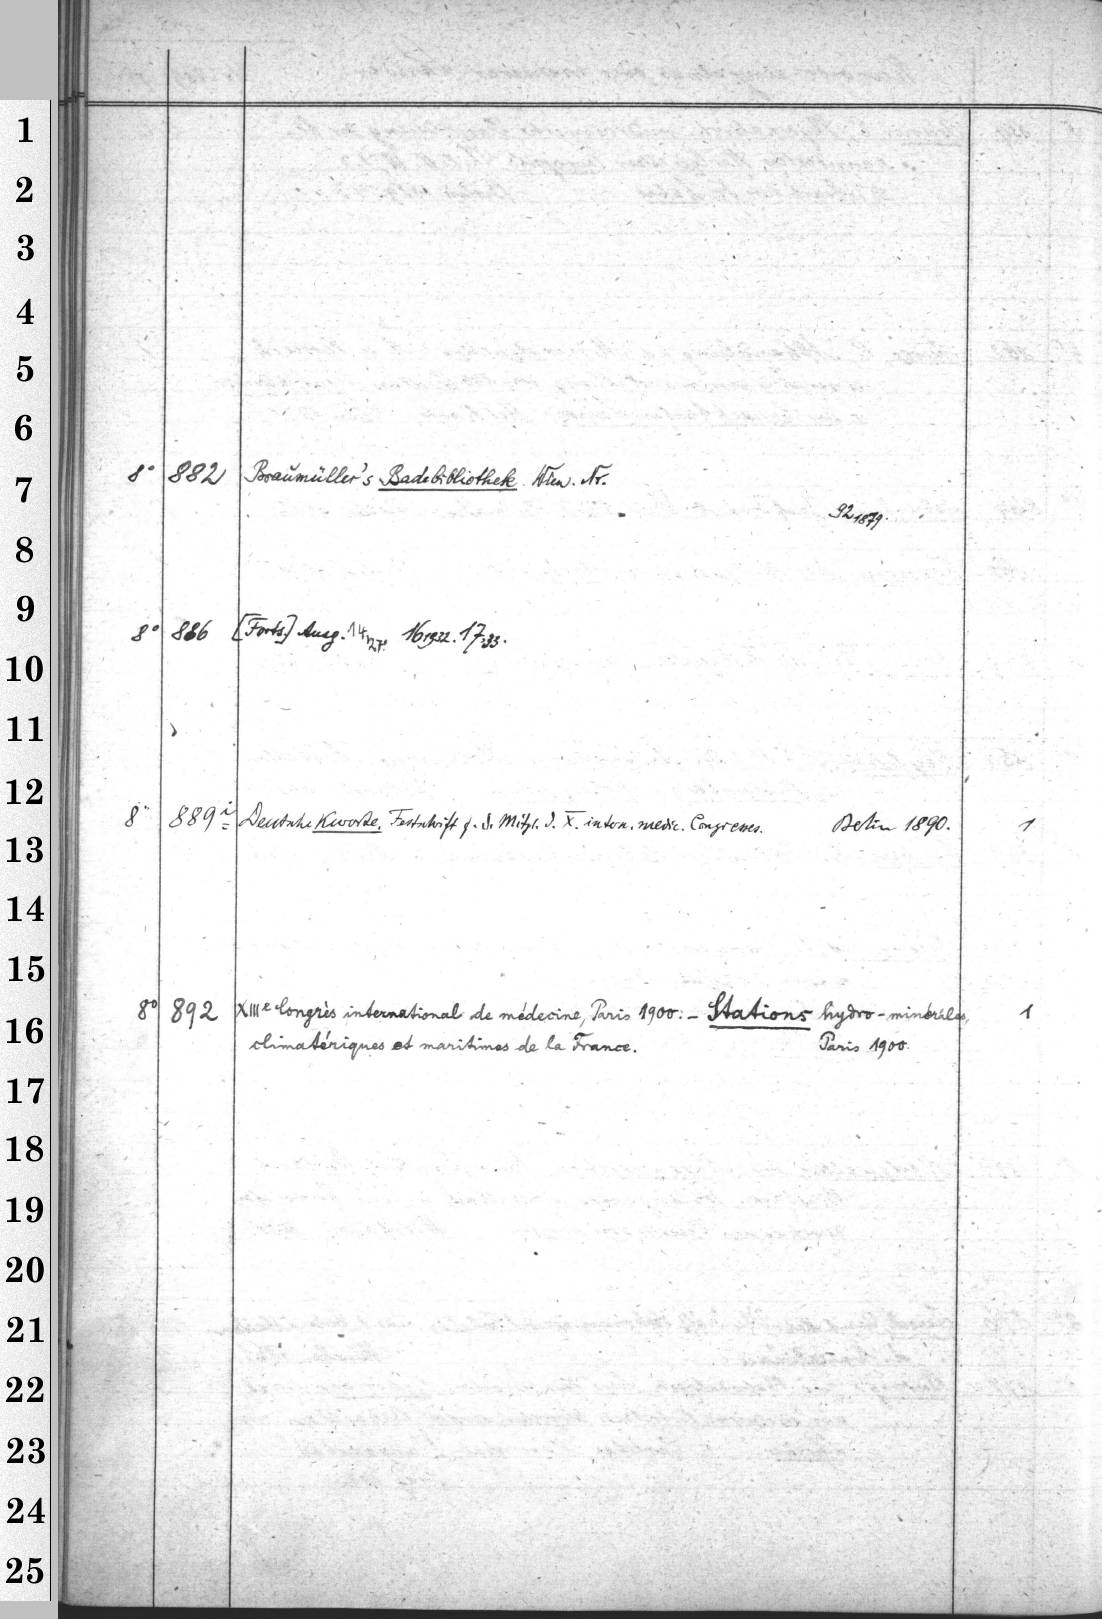 1
2
3
4
5
6
8° 882 Braumüller's Badebibliothek. Wien. Nr.
7
92 1879.
8
9
8° 886 [Forts.] Ausg. 14 16 1932. 17 33.
10
11
12
8° 889 i Deutsche Kurorte. Festschrift f. d. Mitgl. d. X. intern. medic. Congresses. Berlin 1890. 1
13
14
15
8° 892 XIIIe Congrès international de médecine, Paris 1900. — Stations hydro-minérales, 1
16
climatériques et maritimes de la France. Paris 1900.
17
18
19
20
21
22
23
24
25